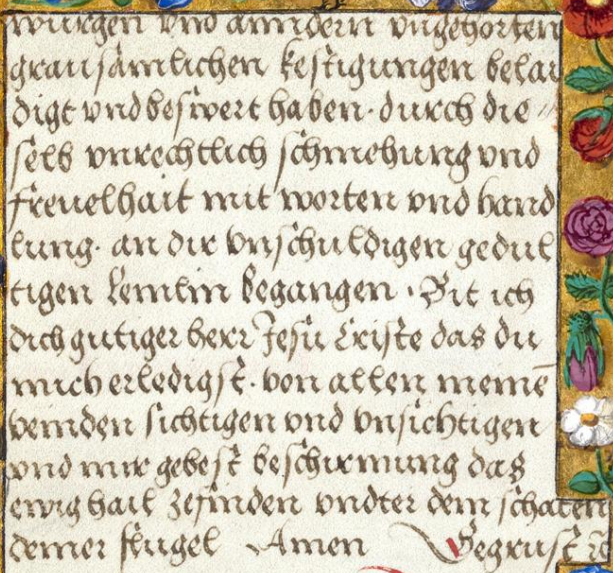 würgen vnd anndern vngehorten
grausamlichen kestigungen belai
digt vnd beswert haben. durch die
selb vnrechtlich schmehung vnd
freuelhait mit worten vnd hand
lung. an dir vnschuldigen gedul
tigen lemlin begangen. Bit ich
dich gutiger herr Jesu Criste das du
mich erledigst. von allen meinē
veinden sichtigen vnd vnsichtigen
vnd mir gebest beschirmung das
ewig hail zefinden vndter dem schaten
deiner flugel Amen Gegrust